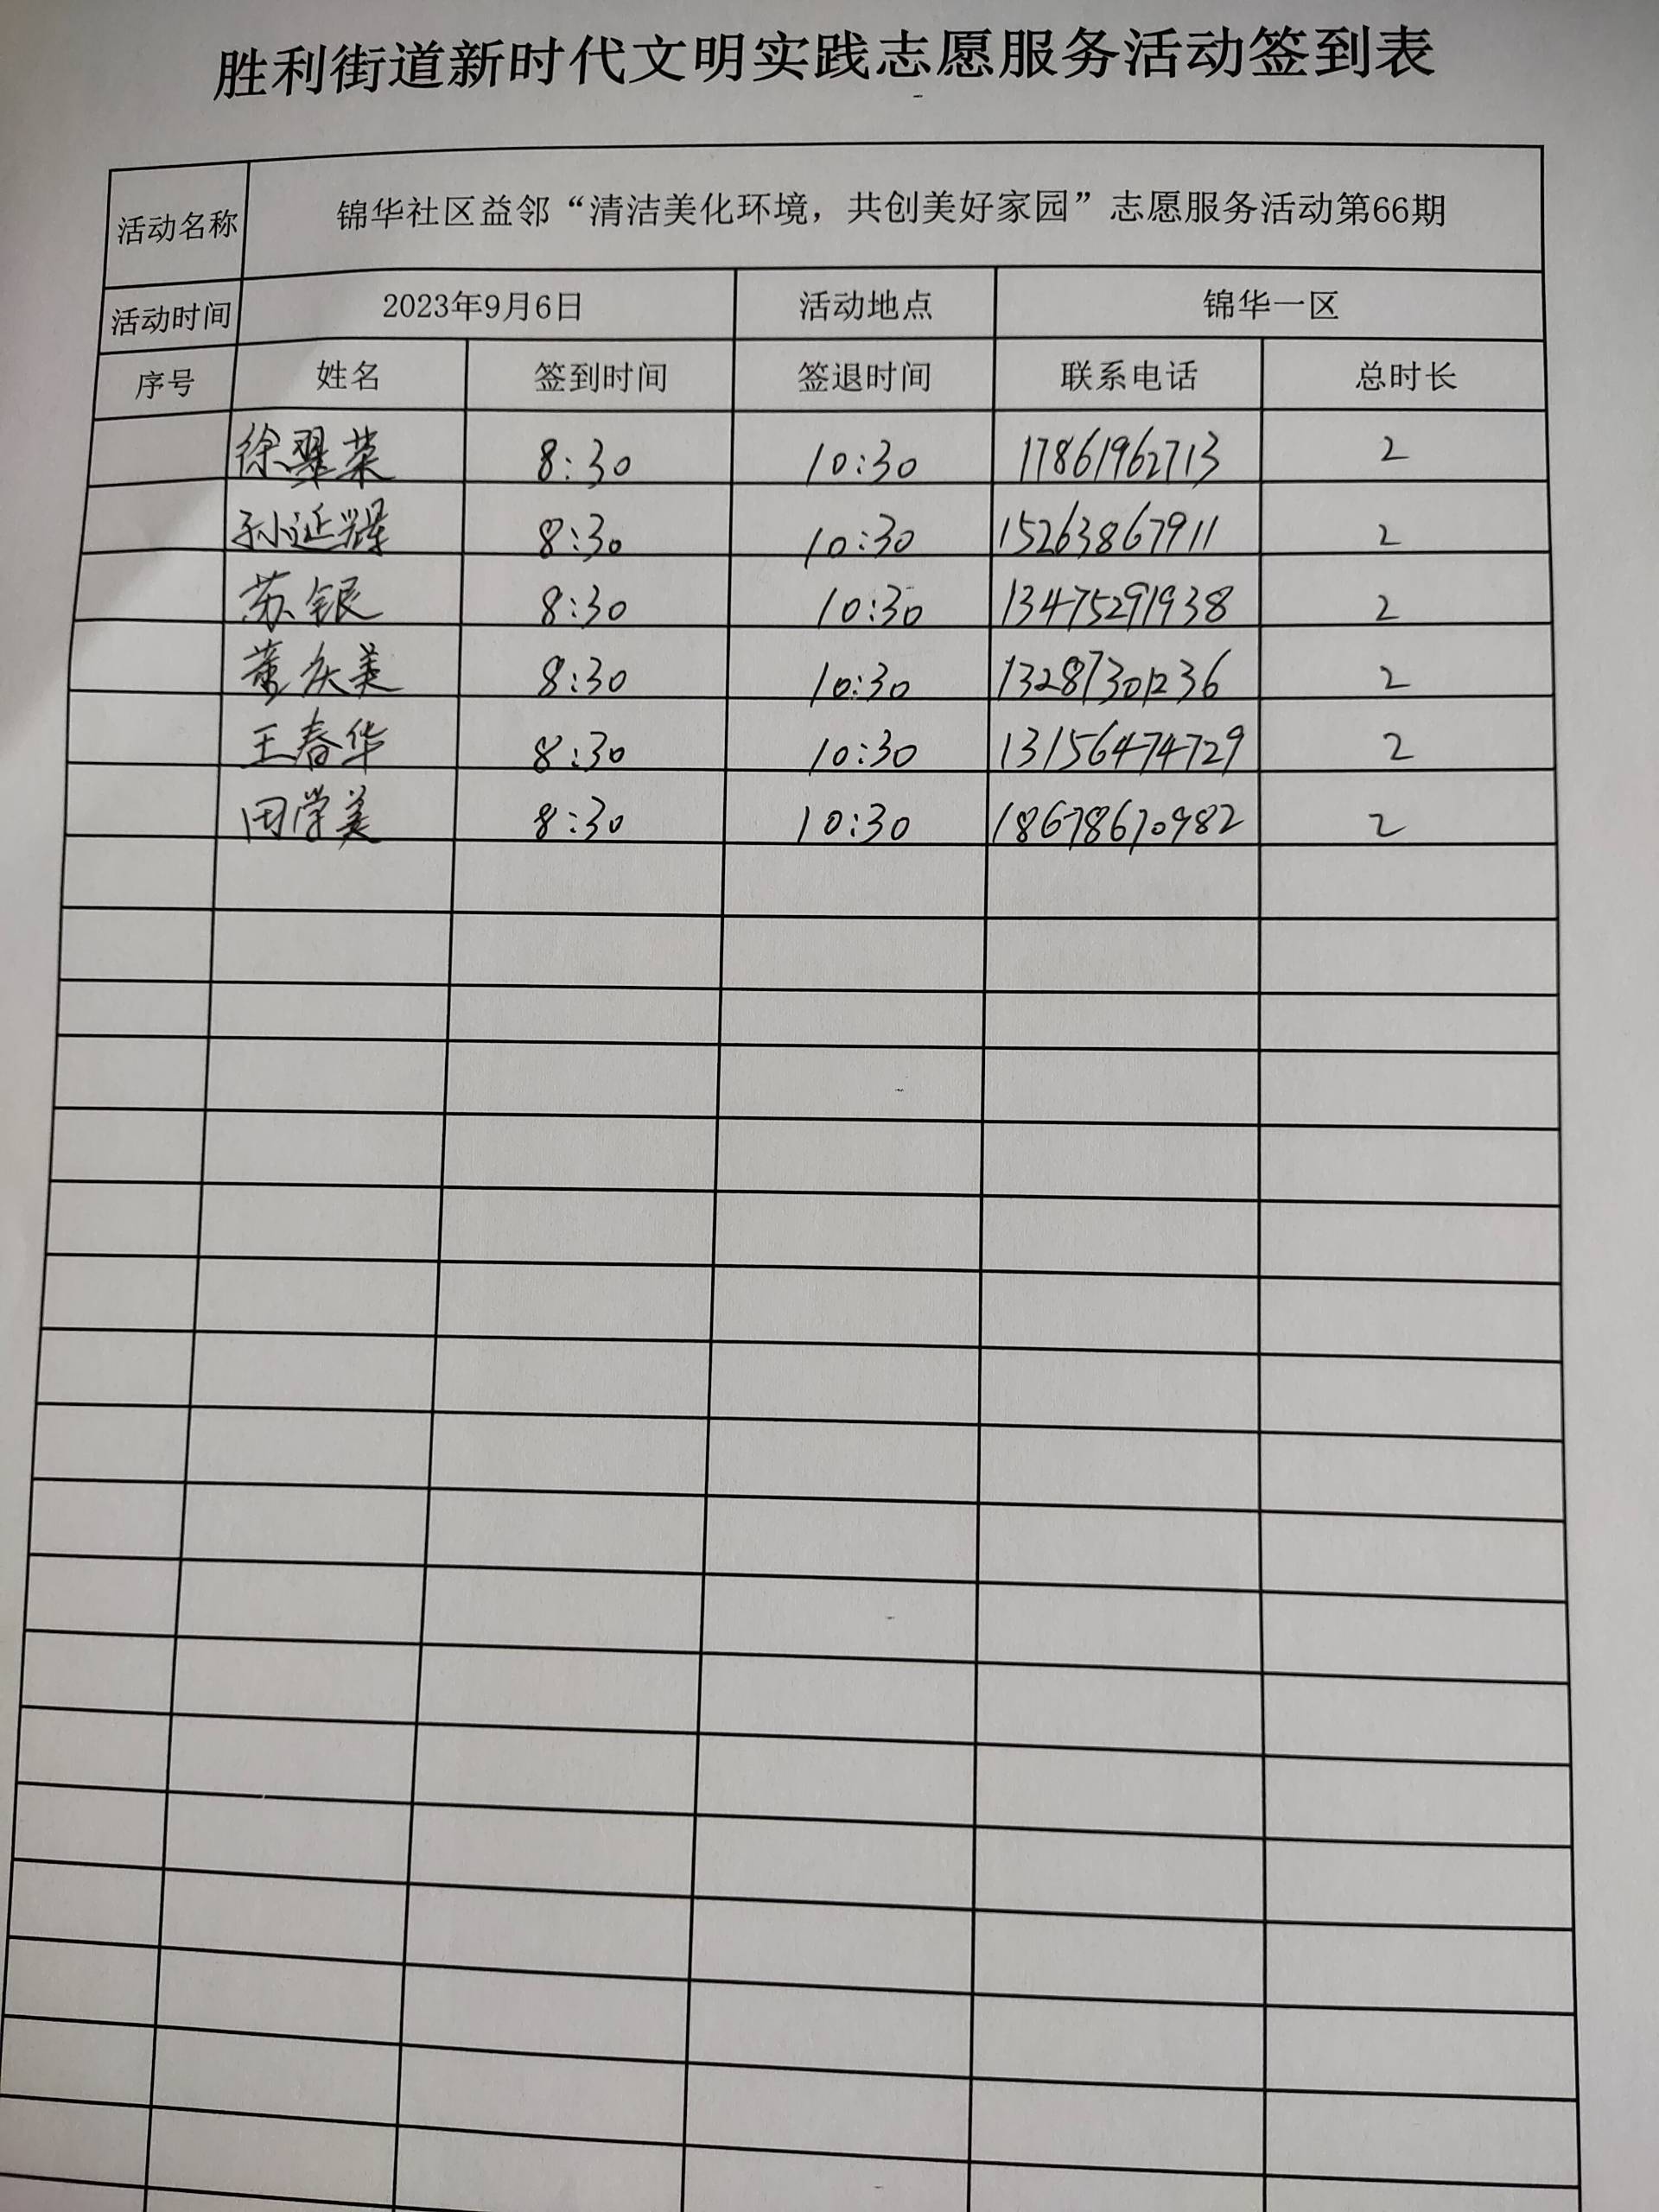 胜利街道新时代文明实践志愿服务活动签到表
活动名称 锦华社区益邻“清洁美化环境，共创美好家园”志愿服务活动第66期
活动时间 2023年9月6日 活动地点 锦华一区
序号 姓名 签到时间 签退时间 联系电话 总时长
徐翠荣 8:30 10:30 17861962713 2
孙延辉 8:30 10:30 15263867911 2
苏银 8:30 10:30 13475291938 2
董庆美 8:30 10:30 13287301236 2
王春华 8:30 10:30 13156474729 2
田学美 8:30 10:30 18678670982 2